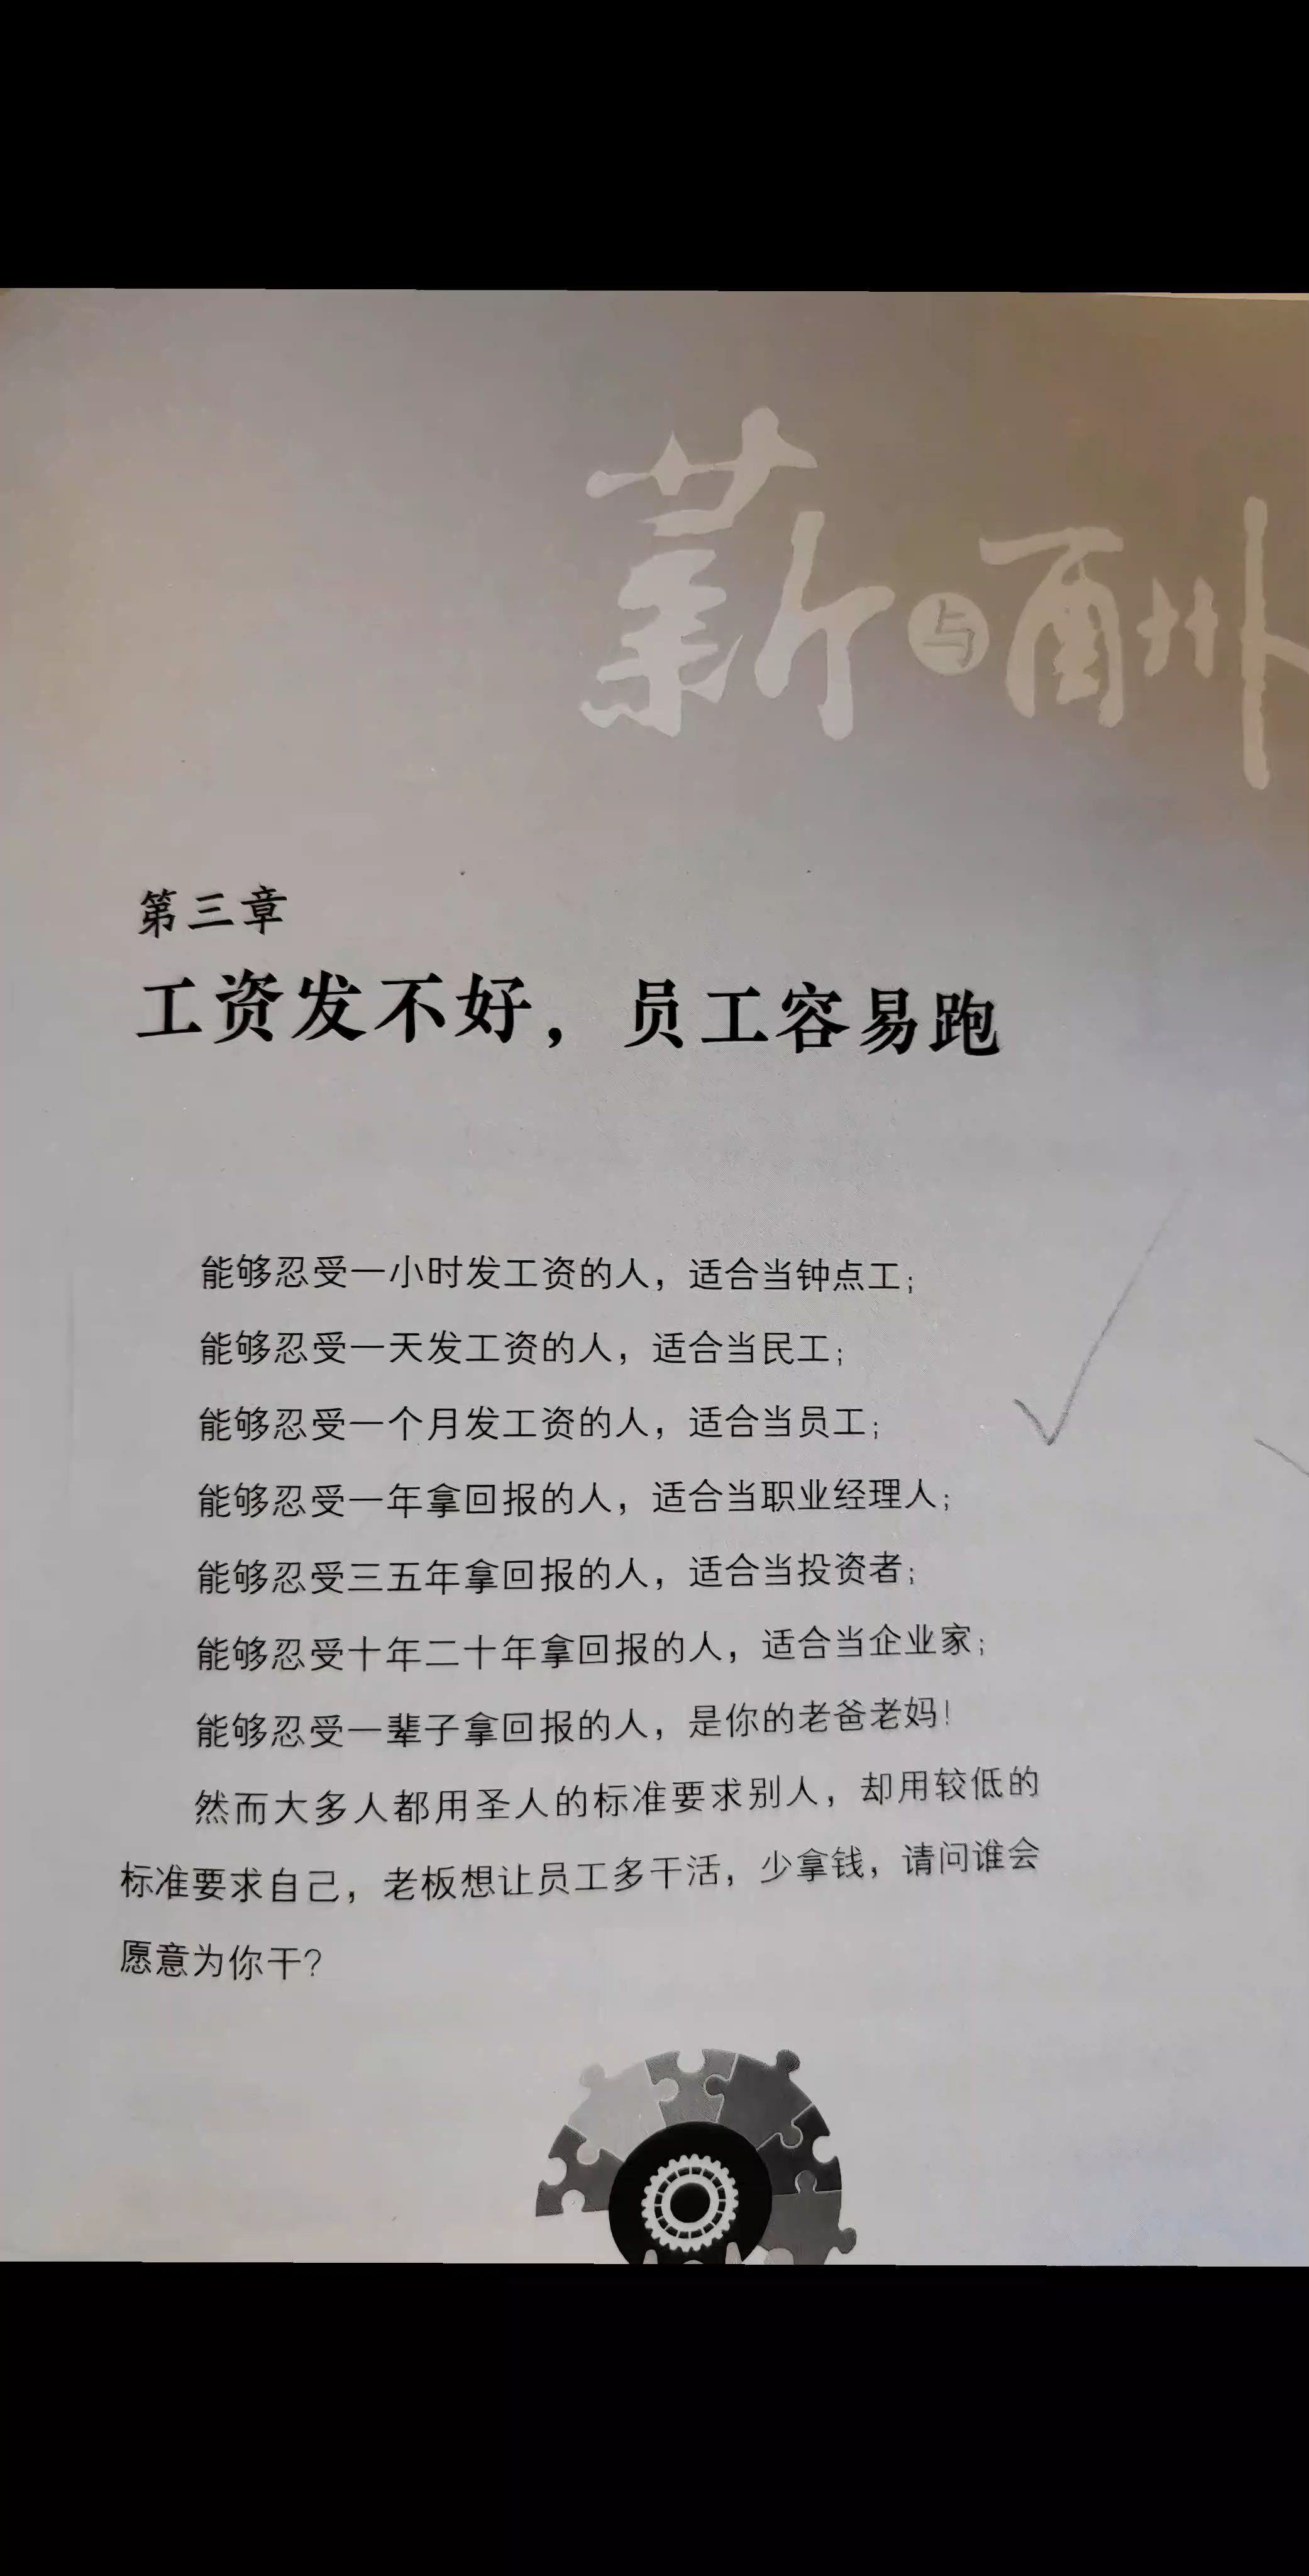 薪与酬
第三章
工资发不好，员工容易跑
能够忍受一小时发工资的人，适合当钟点工；
能够忍受一天发工资的人，适合当民工；
能够忍受一个月发工资的人，适合当员工；
能够忍受一年拿回报的人，适合当职业经理人；
能够忍受三五年拿回报的人，适合当投资者；
能够忍受十年二十年拿回报的人，适合当企业家；
能够忍受一辈子拿回报的人，是你的老爸老妈！
然而大多人都用圣人的标准要求别人，却用较低的
标准要求自己，老板想让员工多干活，少拿钱，请问谁会
愿意为你干？